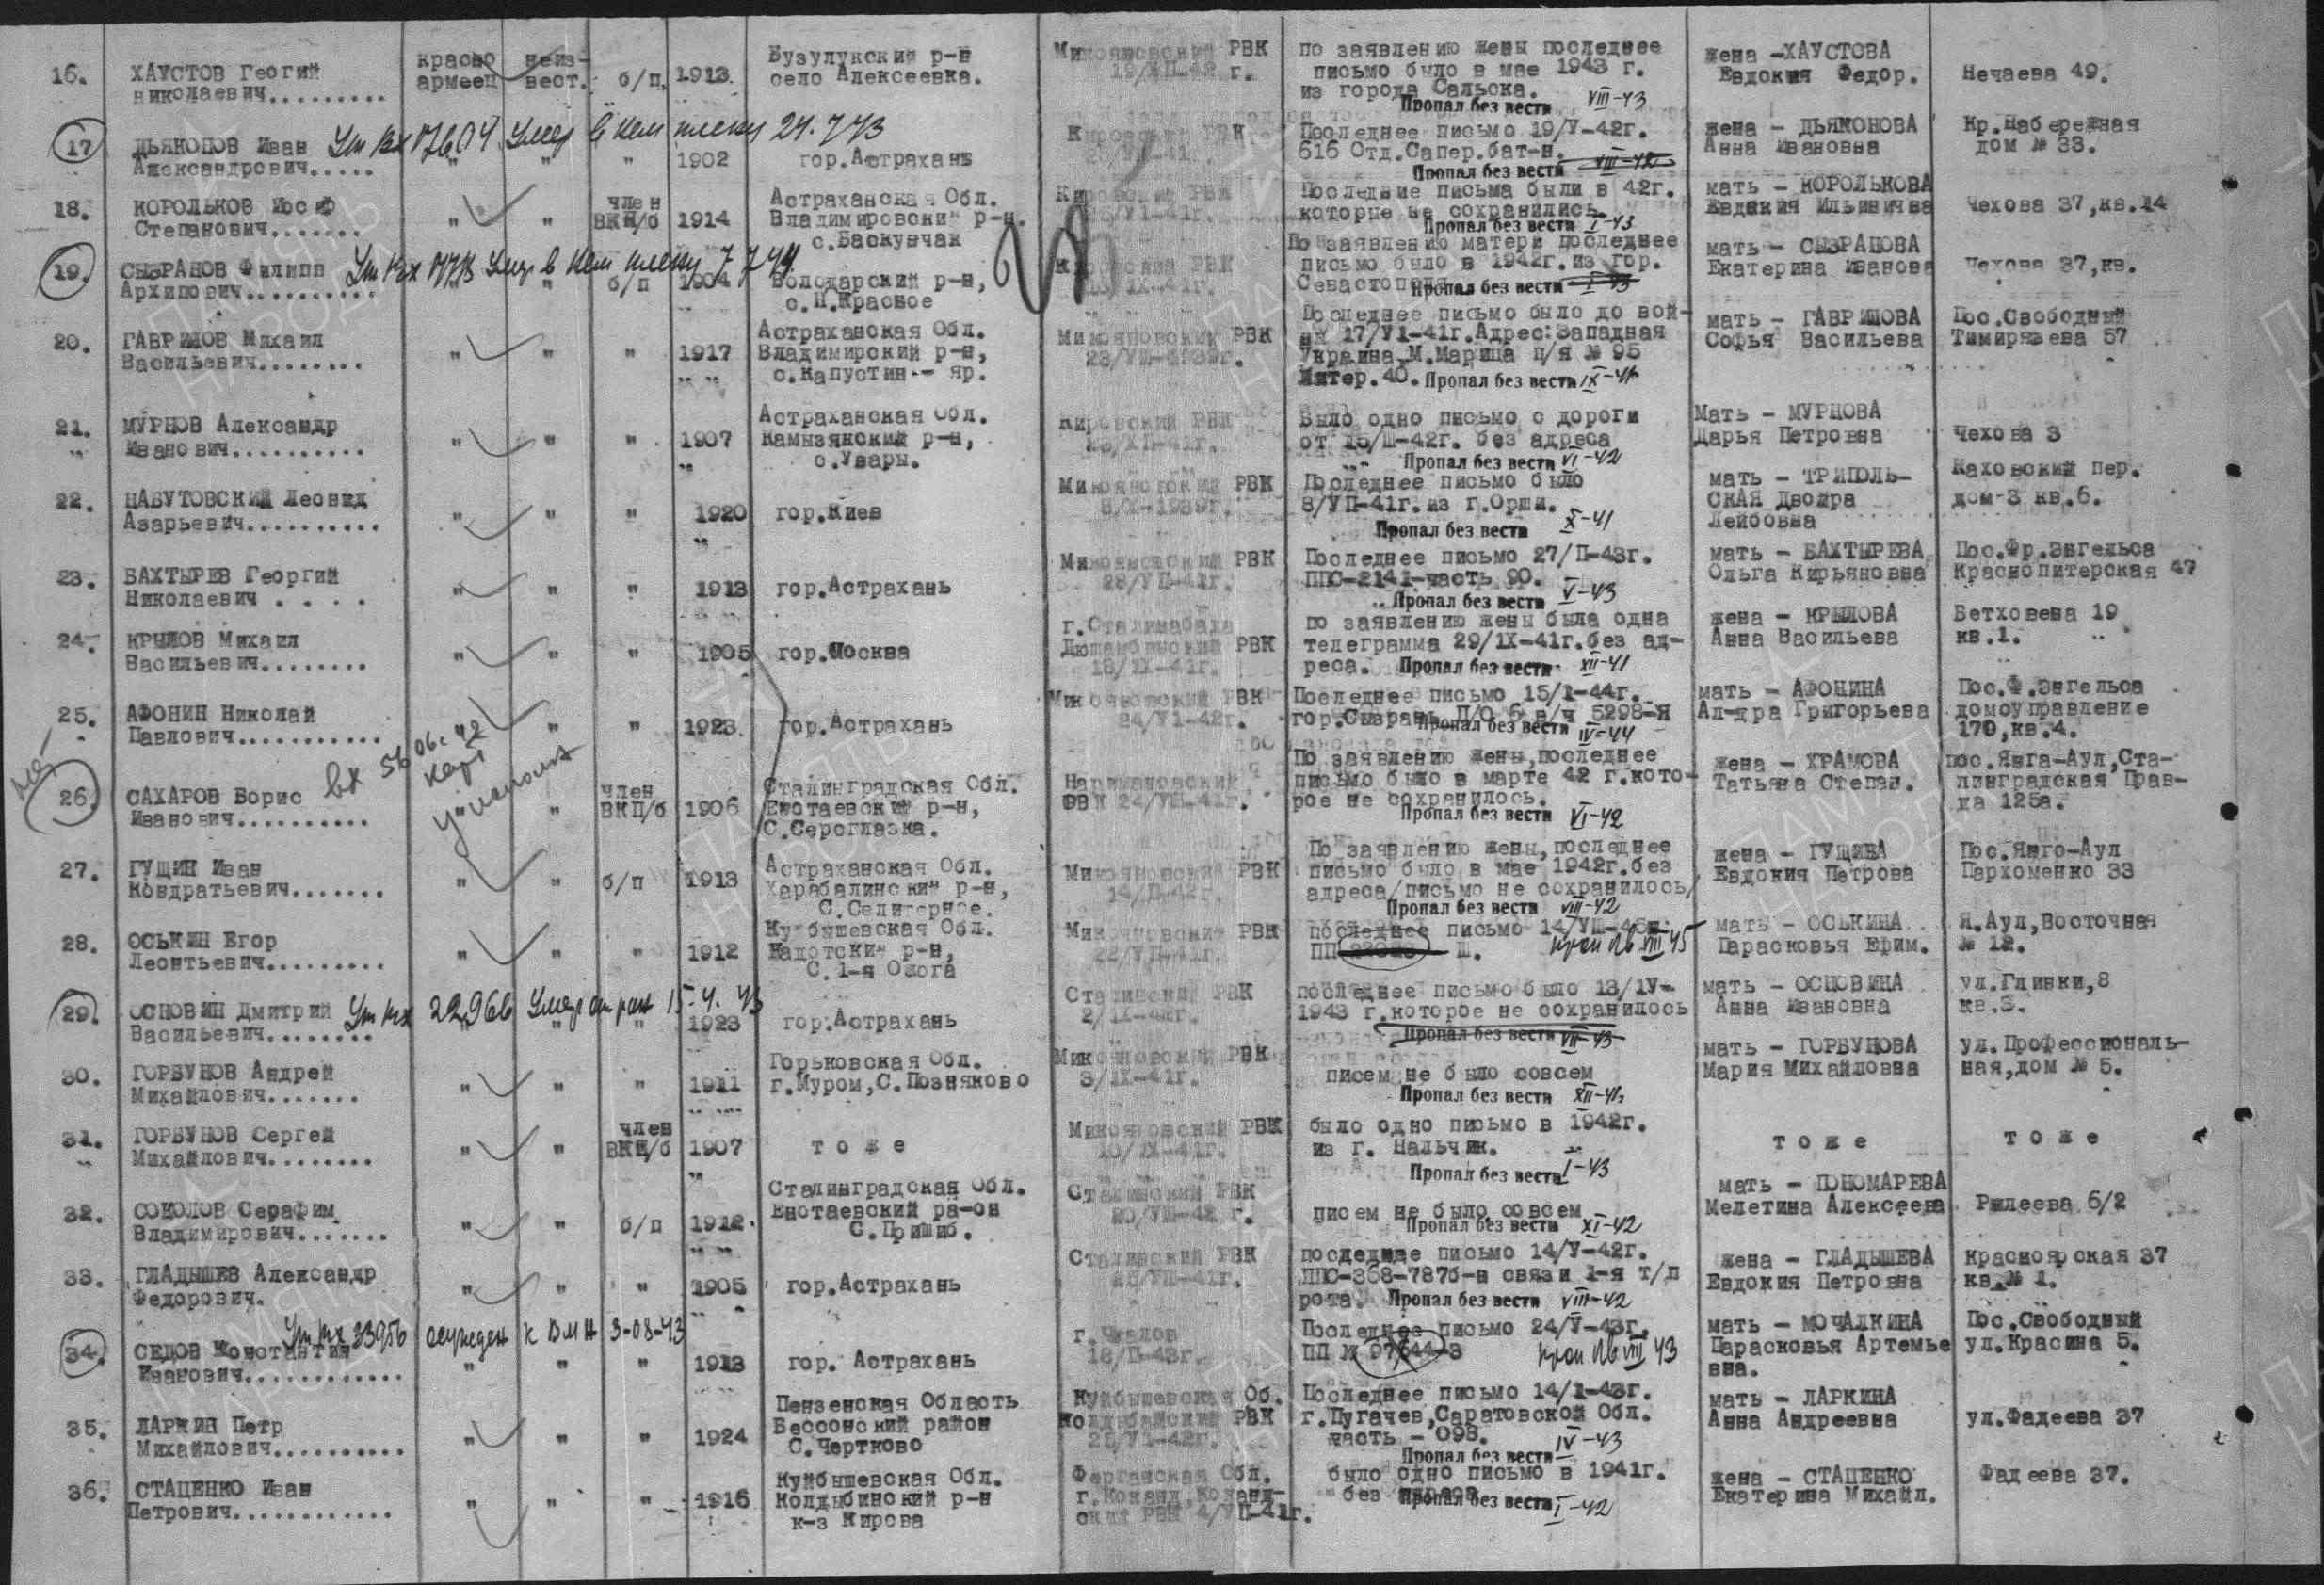 16.
ХАУСТОВ Геогий
николаевич.........
красно
армеец
неиз-
вест.
б/п.
1913.
Бузулукский р-н
село Алексеевка.
Микояновский РВК
г.
по заявлению жены последнее
письмо было в мае 1943 г.
из города Сальска.
Пропал без вести VIII-43
жена -ХАУСТОВА
Евдокия Федор.
Нечаева 49.
17
ДЬЯКОНОВ Иван
Александрович.....
17604 Умер в нем плену 24.7 43
" " "
1902
гор.Астрахань
Последнее письмо 19/V-42г.
616 Отд.Сапер.бат-н.
Пропал без вести VIII-42
жена - ДЬЯКОНОВА
Анна Ивановна
Кр.Набережная
дом № 33.
18.
КОРОЛЬКОВ Иосиф
Степанович.......
" "
член
ВКП/б
1914
Астраханская Обл.
Владимировский р-н.
с.Баскунчак
Кировский РВК
Последние письма были в 42г.
которые не сохранились.
Пропал без вести I-43
мать - КОРОЛЬКОВА
Евдокия Ильинична
Чехова 37,кв.14
19.
СЫЗРАНОВ Филипп
Архипович..........
Умер в нем плену 7 7 44
" б/п
1904
Володарский р-н,
с.Н.Красное
Кировский РВК
По заявлению матери последнее
письмо было в 1942г.из гор.
Севастополя
Пропал без вести I-43
мать - СЫЗРАНОВА
Екатерина Иванова
Чехова 37,кв.
20.
ГАВРИЛОВ Михаил
Васильевич........
" " "
1917
Астраханская Обл.
Владимирский р-н,
с.Капустин - яр.
Микояновский РВК
Последнее письмо было до вой-
ны 17/У1-41г.Адрес:Западная
Украина М.Марица п/я № 95
Литер.40. Пропал без вести IX-41
мать - ГАВРИЛОВА
Софья Васильева
Пос.Свободный
Тимирязева 57
21.
МУРНОВ Александр
Иванович..........
" " "
1907
Астраханская Обл.
Камызякский р-н,
с.Увары.
Кировский РВК
Было одно письмо с дороги
от 15/Ш-42г. без адреса
Пропал без вести VI-42
Мать - МУРНОВА
Дарья Петровна
Чехова 3
22.
НАБУТОВСКИЙ Леонид
Азарьевич..........
" " "
1920
гор.Киев
Микояновский РВК
8/X-1939г.
Последнее письмо было
8/УП-41г.из г.Орши.
Пропал без вести X-41
мать - ТРИПОЛЬ-
СКАЯ Двойра
Лейбовна
Каховский пер.
дом-3 кв.6.
23.
БАХТЫРЕВ Георгий
Николаевич . . . .
" " "
1913
гор.Астрахань
Микояновский РВК
28/УП-41г.
Последнее письмо 27/П-43г.
ППС-2141-часть 90.
Пропал без вести V-43
мать - БАХТЫРЕВА
Ольга Кирьяновна
Пос.Фр.Энгельса
Краснопитерская 47
24.
КРЫЛОВ Михаил
Васильевич........
" " "
1905
гор.Москва
г.Сталинабада
Дюшамбинский РВК
18/IX-41г.
по заявлению жены была одна
телеграмма 29/IX-41г.без ад-
реса. Пропал без вести XII-41
жена - КРЫЛОВА
Анна Васильева
Бетховена 19
кв.1.
25.
АФОНИН Николай
Павлович...........
" "
1923.
гор.Астрахань
Микояновский РВК
24/У1-42г.
Последнее письмо 15/1-44г.
гор.Сызрань П/О 6 в/ч 5298-Я
Пропал без вести IV-44
мать - АФОНИНА
Ал-дра Григорьева
Пос.Ф.Энгельса
домоуправление
170,кв.4.
26.
САХАРОВ Борис
Иванович..........
вх 5606с 42
"
член
ВКП/б
1906
Сталинградская Обл.
Енотаевский р-н,
С.Сероглазка.
Наримановский
РВК 24/УП-41г.
По заявлению жены,последнее
письмо было в марте 42 г.кото-
рое не сохранилось.
Пропал без вести VI-42
жена - ХРАМОВА
Татьяна Степан.
пос.Янга-Аул,Ста-
линградская Прав-
да 125а.
27.
ГУЩИН Иван
Кондратьевич.......
" "
б/п
1913
Астраханская Обл.
Харабалинский р-н,
С.Селитерное.
Микояновский РВК
14/П-42г.
По заявлению жены,последнее
письмо было в мае 1942г.без
адреса/письмо не сохранилось/
Пропал без вести VIII-42
жена - ГУЩИНА
Евдокия Петрова
Пос.Янго-Аул
Пархоменко 33
28.
ОСЬКИН Егор
Леонтьевич.........
" " "
1912
Куйбышевская Обл.
Кадотский р-н,
С.1-я Ожога
Микояновский РВК
последнее письмо 14/УШ-45г.
ПП Ш.
VIII 45
мать - ОСЬКИНА
Парасковья Ефим.
Я.Аул,Восточная
№ 12.
29.
ОСНОВИН Дмитрий
Васильевич........
22966 Умер от ран 15-4.43
1923
гор.Астрахань
Сталинский РВК
последнее письмо было 13/1У-
1943 г.которое не сохранилось
Пропал без вести VII-43
мать - ОСНОВИНА
Анна Ивановна
ул.Глинки,8
кв.3.
30.
ГОРБУНОВ Андрей
Михайлович.......
" " "
1911
Горьковская Обл.
г.Муром,С.Позняково
Микояновский РВК
3/IX-41г.
писем не было совсем
Пропал без вести XII-41
мать - ГОРБУНОВА
Мария Михайловна
ул.Профессиональ-
ная,дом № 5.
31.
ГОРБУНОВ Сергей
Михайлович........
" "
член
ВКП/б
1907
т о ж е
Микояновский РВК
было одно письмо в 1942г.
из г. Нальчик.
Пропал без вести I-43
т о ж е
т о ж е
32.
СОКОЛОВ Серафим
Владимирович.......
" "
б/п
1912.
Сталинградская Обл.
Енотаевский ра-он
С.Пришиб.
Сталинский РВК
писем не было совсем
Пропал без вести XI-42
мать - ПОНОМАРЕВА
Мелетина Алексеева
Рылеева 6/2
33.
ГЛАДЫШЕВ Александр
Федорович.
" " "
1905
гор.Астрахань
Сталинский РВК
последнее письмо 14/У-42г.
ППС-368-787б-н связи 1-я т/п
рота. Пропал без вести VIII-42
жена - ГЛАДЫШЕВА
Евдокия Петровна
Красноярская 37
кв.№ 1.
34.
СЕДОВ Константин
Иванович............
33956 осужден к ВМН 3-08-43
" " "
1913
гор. Астрахань
г.Чкалов
18/П-43г.
Последнее письмо 24/У-43г.
ПП №
VIII 43
мать - МОЧАЛКИНА
Парасковья Артемье
вна.
Пос.Свободный
ул.Красина 5.
35.
ЛАРКИН Петр
Михайлович..........
" " "
1924
Пензенская Область
Бессонский район
С.Чертково
Куйбышевская Об.
Колдыбайский РВК
Последнее письмо 14/1-43г.
г.Пугачев,Саратовской Обл.
часть - 098.
Пропал без вести IV-43
мать - ЛАРКИНА
Анна Андреевна
ул.Фадеева 37
36.
СТАЦЕНКО Иван
Петрович............
" " "
1916
Куйбышевская Обл.
Колдыбинский р-н
к-з Кирова
Ферганская Обл.
г.Коканд,Коканд-
ский РВК 4/УП-41г.
было одно письмо в 1941г.
без адреса
Пропал без вести I-42
жена - СТАЦЕНКО
Екатерина Михайл.
Фадеева 37.